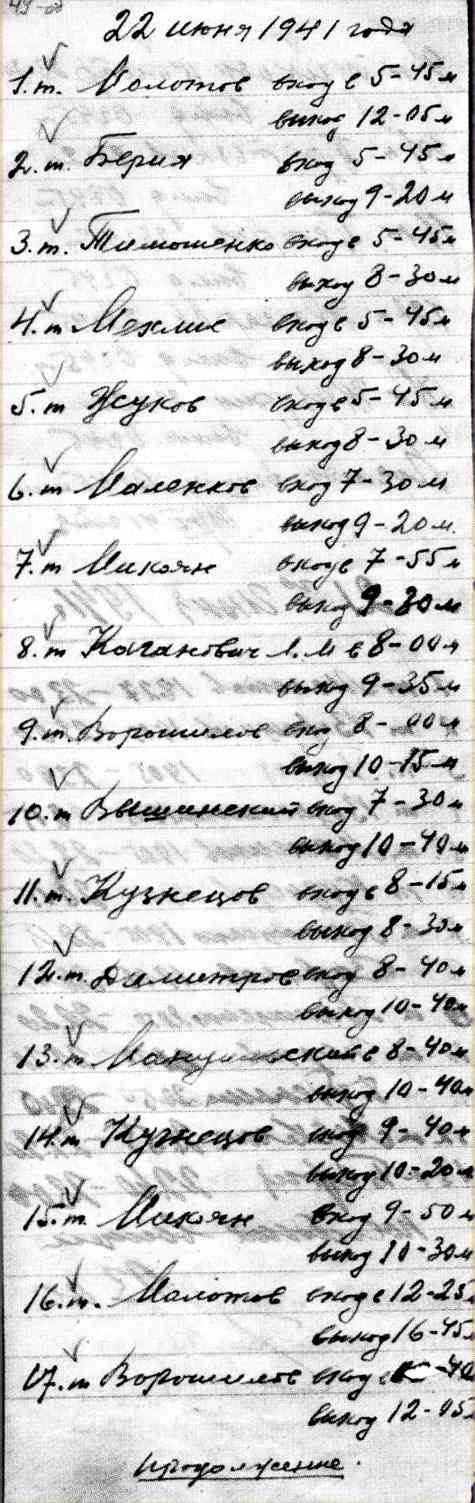 22 июня 1941 года
1. т. Молотов вход в 5-45 м
выход 12-05 м
2. т. Берия вход 5-45 м
выход 9-20 м
3. т. Тимошенко вход в 5-45 м
выход 8-30 м
4. т Мехлис вход в 5-45 м
выход 8-30 м
5. т Жуков вход в 5-45 м
выход 8-30 м
6. т Маленков вход 7-30 м
выход 9-20 м
7. т Микоян вход в 7-55 м
выход 9-30 м
8. т Каганович Л. М в 8-00 м
выход 9-35 м
9. т. Ворошилов вход 8-00 м
выход 10-15 м
10. т Вышинский вход 7-30 м
выход 10-40 м
11. т. Кузнецов вход в 8-15 м
выход 8-30 м
12. т. Димитров вход 8-40 м
выход 10-40 м
13. т Мануильский в 8-40 м
выход 10-40 м
14. т Кузнецов вход 9-40 м
выход 10-20 м
15. т. Микоян вход 9-50 м
выход 10-30 м
16. т. Молотов вход в 12-25 м
выход 16-45 м
17. т Ворошилов вход в -40
выход 12-05
продолжение.